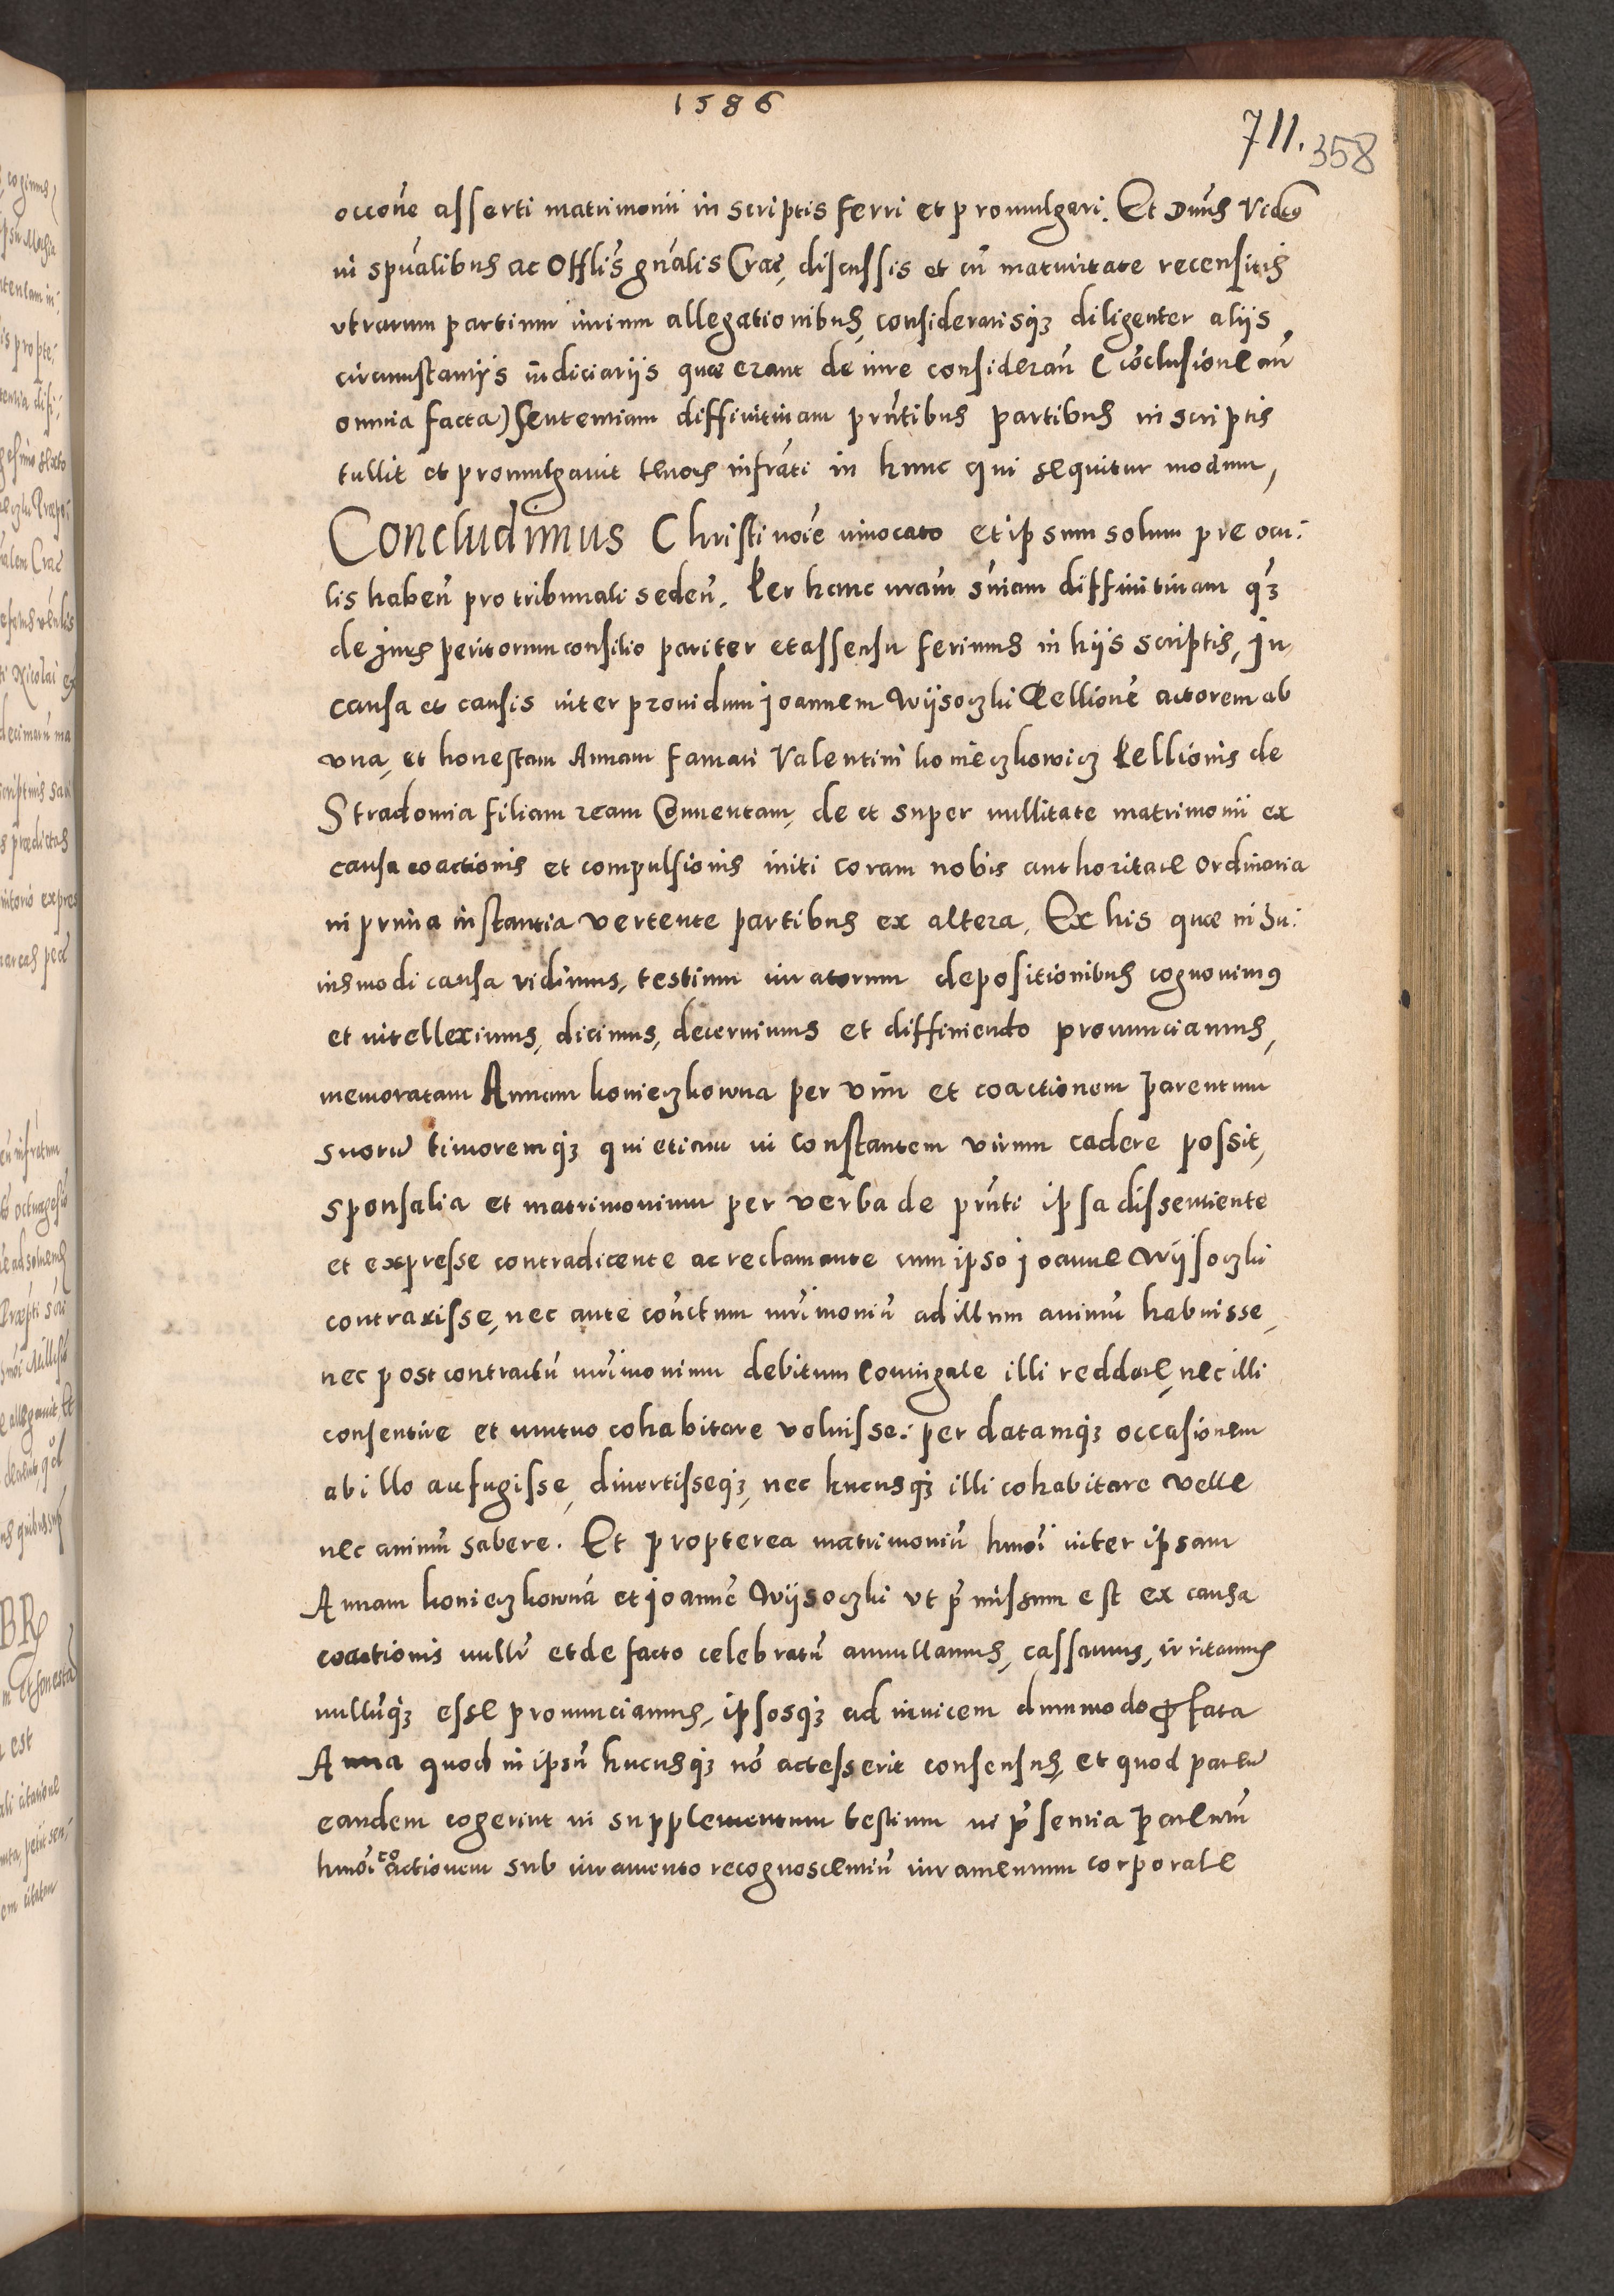 1586
711. 358
occoñe asserti matrimonii in scriptis ferri et promulgari. Et Dnus Vicĕs
in spũalibus ac Offlis gnãlis Crac, discussis et cũ maturitate recensitis
utrarum partium iurium allegationibus, consideratisq₃ diligenter aliis
circumstantijs iudiciarijs quae erant de iure consideran̄ (cõclusione an̄
omnia facta) Sententiam diffinitivam pr̃ntibus partibus in scriptis
tullit et promulgavit tenoris infrãti in hunc qui sequitur modum,
Concludimus Christi noĩe invocato et ipsum solum pre ocu:
lis haben̄ pro tribunali seden̄. Per hanc nr̃am sñiam diffinitivam q₃
de Juris peritorum consilio pariter et assensu ferimus in hijs scriptis, In
causa et causis inter providum Joannem Wijsoczki Pellionẽ actorem ab
una, et honestam Annam famati Valentini konieczkowicz Pellionis de
Stradomia filiam ream Conventam, de et super nullitate matrimonii ex
causa coactionis et compulsionis initi coram nobis authoritate ordinaria
in prima instantia vertente partibus ex altera. Ex his quae in hu:
iusmodi causa vidimus, testium iuratorum depositionibus cognovimus
et intelleximus, dicimus, decernimus et diffiniendo pronunciamus,
memoratam Annam konieczkowna per vim et coactionem parentum
suorũ timoremq₃ qui etiam in constantem virum cadere possit,
sponsalia et matrimonium per verba de pr̃nti ipsa dissentiente
et expresse contradicente ac reclamante cum ipso Joanne Wijsoczki
contraxisse, nec ante cõnctum mr̃imoniũ ad illum animũ habuisse,
nec post contractũ mr̃imonium debitum coniugale illi reddere, nec illi
consentire et mutuo cohabitare voluisse: per datamq₃ occasionem
ab illo aufugisse, divertisseq₃, nec hucusq₃ illi cohabitare velle
nec animũ habere. Et propterea matrimoniũ hmõi inter ipsam
Annam konieczkowna et Joannẽ Wijsoczki ut p̃missum est ex causa
coactionis nullũ et de facto celebratũ annullamus, cassamus, irritamus
nullũq₃ esse pronunciamus, ipsosq₃ ad invicem dummodo p̃fata
Anna quod in ipsũ hucusq₃ nõ accesserit consensus, et quod parẽn
eandem cogerint in supplementum testium in p̃sentia parentũ
hmõi coactionem sub iuramento recognoscentiũ iuramentum corporale